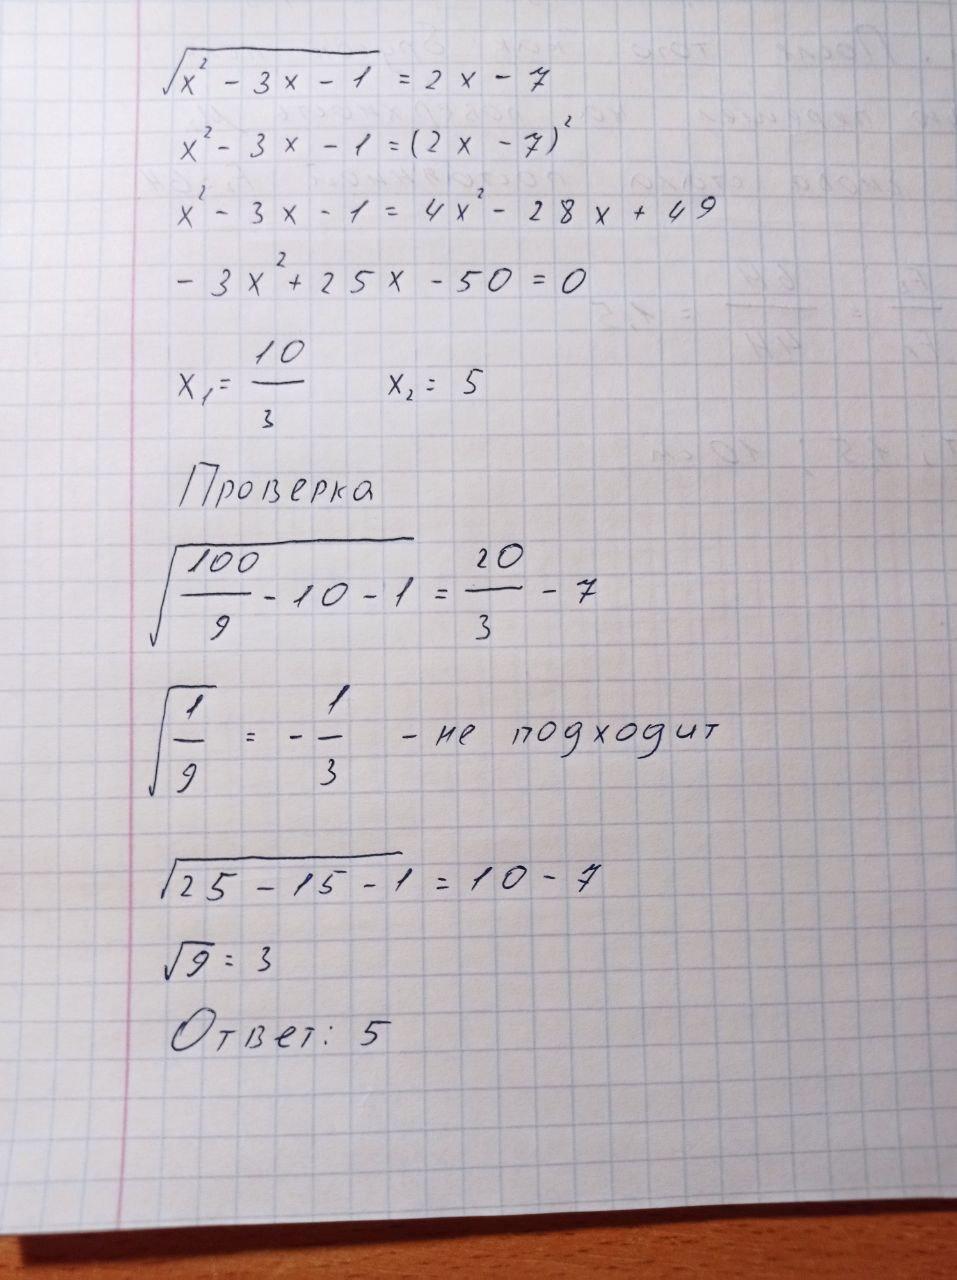 √(x² - 3x - 1) = 2x - 7
x² - 3x - 1 = (2x - 7)²
x² - 3x - 1 = 4x² - 28x + 49
- 3x² + 25x - 50 = 0
x₁ = 10/3    x₂ = 5
Проверка
√(100/9 - 10 - 1) = 20/3 - 7
√(1/9) = - 1/3 - не подходит
√(25 - 15 - 1) = 10 - 7
√9 = 3
Ответ: 5